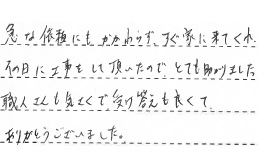 急な依頼にもかかわらず、すぐ家に来てくれ
その日に工事をして頂いたのでとても助かりました
職人さんも気さくで受け答えも良くて
ありがとうございました。